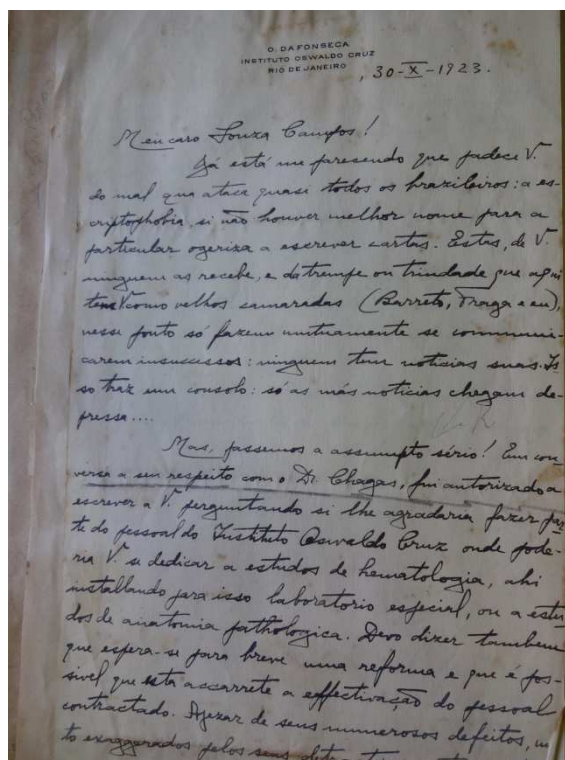 O. DA FONSECA
INSTITUTO OSWALDO CRUZ
RIO DE JANEIRO
, 30-X-1923.
Meu caro Souza Campos!
Já está me paresendo que padece V.
do mal que ataca quasi todos os brazileiros: a es-
criptophobia, si não houver melhor nome para a
particular ogeriza a escrever cartas. Estas, de V.
ninguem as recebe, e da trempe ou trindade que aqui
tem V. como velhos camaradas (Barreto, Fraga e eu),
nesse ponto só fazem mutuamente se communi-
carem insucessos: ninguem tem noticias suas. Is
so traz um consolo: só as más noticias chegam de-
pressa....
Mas, passemos a assumpto sério! Em con-
versa a seu respeito com o Dr. Chagas, fui autorizado a
escrever a V. perguntando si lhe agradaria fazer par-
te do pessoal do Instituto Oswaldo Cruz onde pode-
ria V. se dedicar a estudos de hematologia, ahi
installando para isso laboratorio especial, ou a estu
dos de anatomia pathologica. Devo dizer tambem
que espera-se para breve uma reforma e que é pos-
sivel que esta accarrete a effectivação do pessoal
contractado. Apezar de seus numerosos defeitos, mui
to exaggerados pelos seus